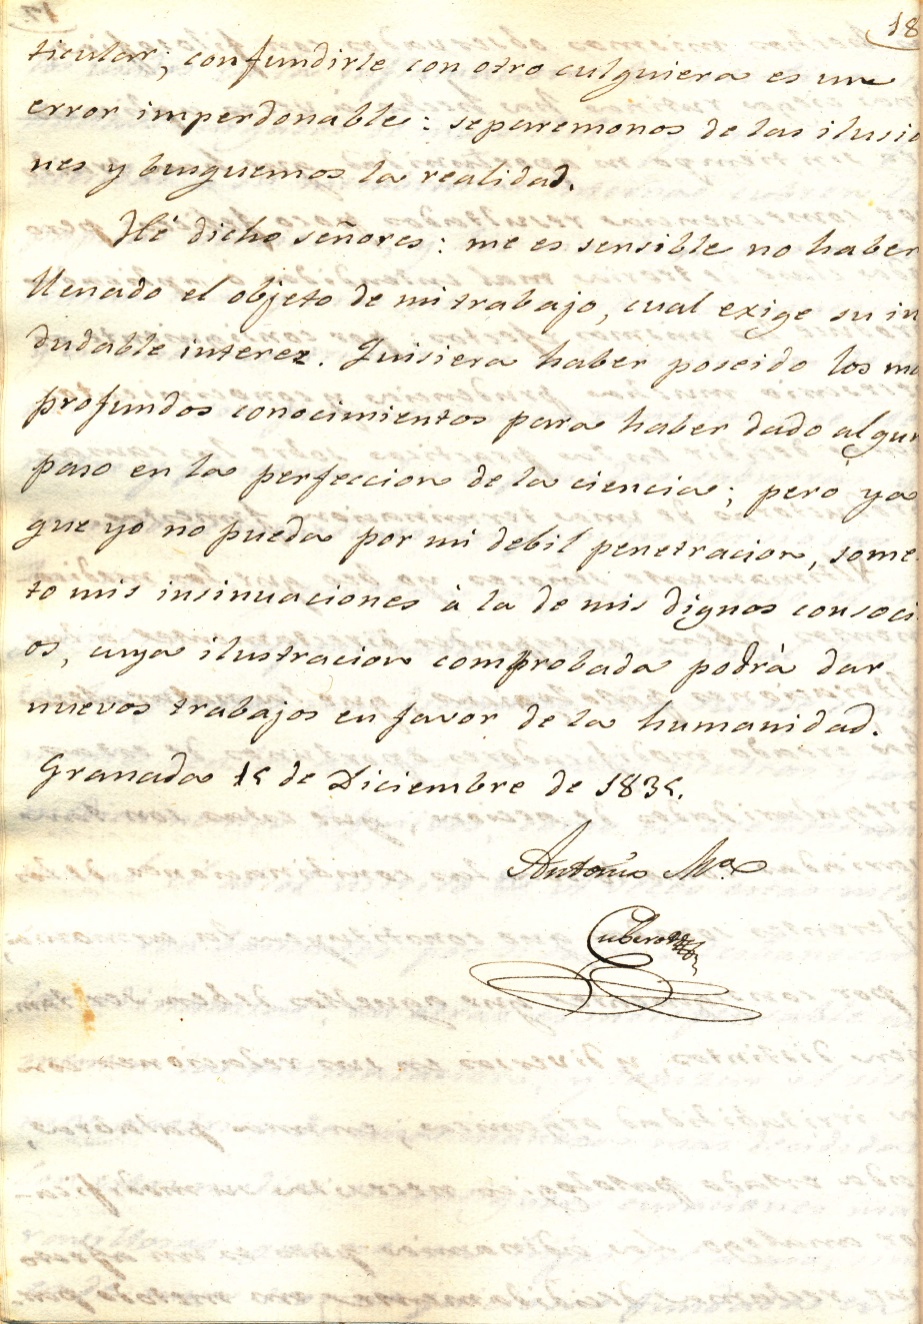 18
ticular; confundirle con otro culquiera es un
error imperdonable: separemonos de las ilusio
nes y busquemos la realidad.
Hé dicho señores: me es sensible no haber
llenado el objeto de mi trabajo, cual exige su in
dudable interez. Quisiera haber poseido los ma
profundos conocimientos para haber dado algun
paso en la perfeccion de la ciencia; pero ya
que yo no pueda por mi debil penetracion, some
to mis insinuaciones à la de mis dignos consoci
os, cuya ilustracion comprobada podrà dar
nuevos trabajos en favor de la humanidad.
Granada 15 de Diciembre de 1835.
Antonio Mª
Cubero